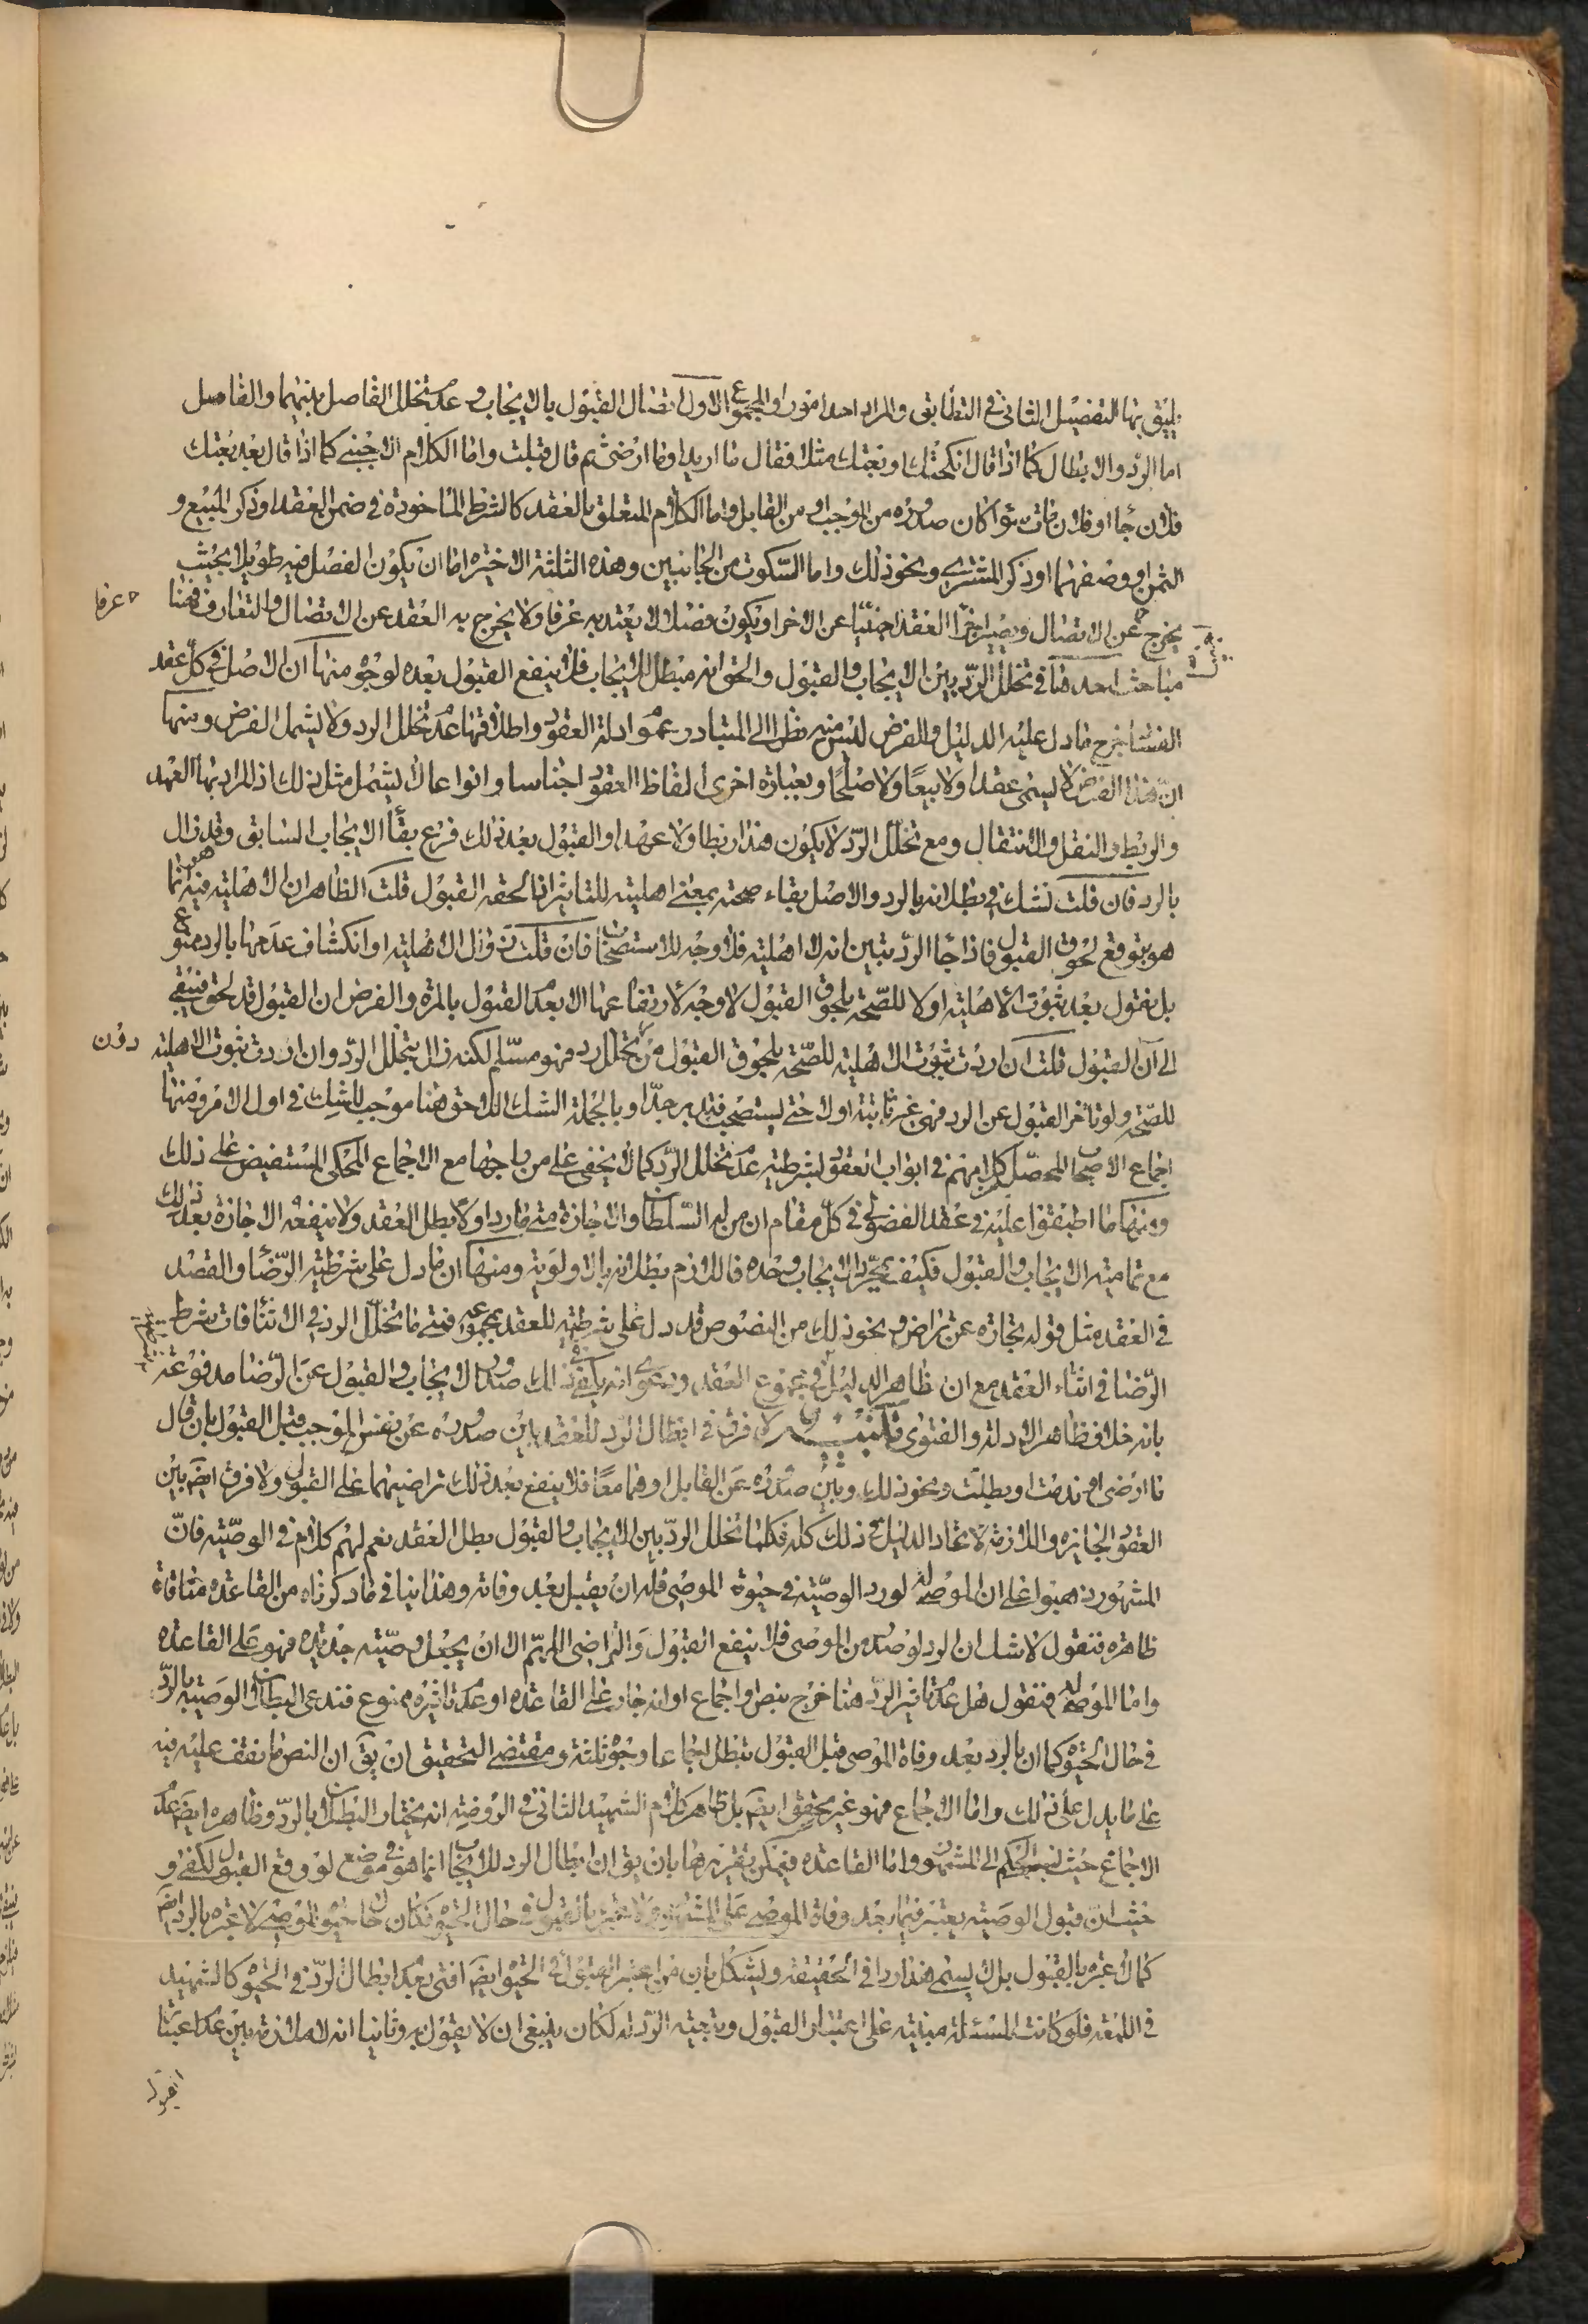 يليق بها التفصيل الثاني في التطابق والمراد احد امور او المجموع الاول اتصال القبول بالايجاب وعدم تخلل الفاصل بينهما والفاصل
اما الرد والابطال كما اذا قال انكحتك او بعتك مثلا فقال ما اريد او ما ارضى ثم قال قبلت واما الكلام الاجنبي كما اذا قال بعد بعتك
فلان جاء او فلان مات سواء كان صدوره من الموجب او من القابل واما الكلام المتعلق بالعقد كالشرط الماخوذة في ضمن العقد او ذكر المبيع و
الثمن او وصفهما او ذكر المشتري ونحو ذلك واما السكوت من الجانبين وهذه الثلثة الاخيرة اما ان يكون الفصل فيه طويلا بحيث
يخرج عن الاتصال ويصير اجزاء العقد اجنبيا عن الاخر او يكون فصلا لا يعتد به عرفا ولا يخرج به العقد عن الاتصال والتعارف فهنا
عرفا
مباحث احدها في تخلل الرد بين الايجاب والقبول والحق انه مبطل للايجاب فلا ينفع القبول بعده لوجوه منها ان الاصل في كل عقد
الفساد خرج ما دل عليه الدليل والفرض ليس منه نظرا الى المتبادر وعموم ادلة العقود واطلاقها عدم تخلل الرد ولا يشمل الفرض ومنها
ان هذا الفرض لا يسمى عقدا ولا بيعا ولا صلحا وبعبارة اخرى الفاظ العقود اجناسا وانواعا لا يشمل مثل ذلك اذ المراد بها العهد
والربط والنقل والانتقال ومع تخلل الرد لا يكون هذا ربطا ولا عهدا والقبول بعد ذلك فرع بقاء الايجاب السابق وقد زال
بالرد فان قلت نشك في بطلانه بالرد والاصل بقاء صحته بمعنى اهليته للتاثير اذا لحقه القبول قلت الظاهر ان الاهلية فيه انما
هو بتوقع لحوق القبول فاذا جاء الرد تبين انه لا اهلية فلا وجه للاستصحاب فان قلت زوال الاهلية او انكشاف عدمها بالرد ممنوع
بل نقول بعد ثبوت الاهلية اولا للصحة بلحوق القبول لا وجه لارتفاعها الا بعدم القبول بالمرة والفرض ان القبول قد لحق فيبقى
الى آن القبول قلت ان اردت ثبوت الاهلية للصحة بلحوق القبول من دون تخلل رد فهو مسلم لكنه زال بتخلل الرد وان اردت ثبوت الاهلية
للصحة ولو تاخر القبول عن الرد فهي غير ثابتة اولا حتى يستصحب فتدبر جدا وبالجملة الشك اللاحق هنا موجب للشك في اول الامر ومنها
اجماع الاصحاب المحصل من كلامهم في ابواب العقود لشرطية عدم تخلل الرد كما لا يخفى على من راجعها مع الاجماع المحكي المستفيض على ذلك
ومنها ما اطبقوا عليه في عقد الفضولي في كل مقام ان من له السلطان والاجازة متى ما رد اولا بطل العقد ولا ينفعه الاجازة بعد ذلك
مع تمامية الايجاب والقبول فكيف بمجرد الايجاب وحده فاللازم بطلانه بالاولوية ومنها ان ما دل على شرطية الرضا والقصد
في العقد مثل قوله تجارة عن تراض ونحو ذلك من النصوص قد دل على شرطيته للعقد بمجموعه فمتى ما تخلل الرد في الاثناء فات شرط
الرضا في اثناء العقد مع ان ظاهر الدليل في مجموع العقد ودعوى انه يكفي في ذلك صدور الايجاب والقبول عن الرضا مدفوعة
بانه خلاف ظاهر الادلة والفتوى تنبيه لا فرق في ابطال الرد للعقد بين صدوره عن نفس الموجب قبل القبول بان قال
ما ارضى او ندمت او بطلت ونحو ذلك وبين صدوره عن القابل او هما معا فلا ينفع بعد ذلك تراضيهما على القبول ولا فرق ايضا بين
العقود الجايزة واللازمة لاتحاد الدليل في ذلك كله فكلما تخلل الرد بين الايجاب والقبول بطل العقد نعم لهم كلام في الوصية فان
المشهور ذهبوا على ان الموصى له لو رد الوصية في حيوة الموصي فله ان يقبل بعد وفاته وهذا ينافي ما ذكرناه من القاعدة منافاة
ظاهرة فنقول لا شك ان الرد لو صدر من الموصي فلا ينفع القبول والتراضي اللهم الا ان يجعل وصيته جديدة فهو على القاعدة
واما الموصى له فنقول هل عدم تاثير الرد هنا خرج بنص او اجماع او انه جار على القاعدة او عدم تاثيره ممنوع فندعي البطلان الوصية بالرد
في حال الحيوة كما ان بالرد بعد وفاة الموصي قبل القبول تبطل اجماعا وجوه ثلثة ومقتضى التحقيق ان يق ان النص ما نقف عليه فيه
على ما يدل على ذلك واما الاجماع فهو غير محقق ايضا بل ظاهر كلام الشهيد الثاني في الروضة انه يختار البطلان بالرد وظاهره ايضا عدم
الاجماع حيث نسب الحكم الى المشهور واما القاعدة فيمكن تقريرها بان يق ان ابطال الرد للايجاب انما هو في موضع لو وقع القبول لكفى و
حيث ان قبول الوصية يعتبر فيما بعد وفاة الموصي على المشهور ولا عبرة بالقبول في حال الحيوة فكان حال حيوة الموصي لا عبرة بالرد ايضا
كما لا عبرة بالقبول بل لا يسمى هذا ردا في الحقيقة ويشكل بان من اعتبر القبول في الحيوة ايضا افتى بعدم ابطال الرد في الحيوة كالشهيد
في اللمعة فلو كانت المسئلة مبنية على اعتبار القبول ونتيجة الرد له لكان ينبغي ان لا يقول به وثانيا انه لا ملازمة بين عدم اعتبار
القبول